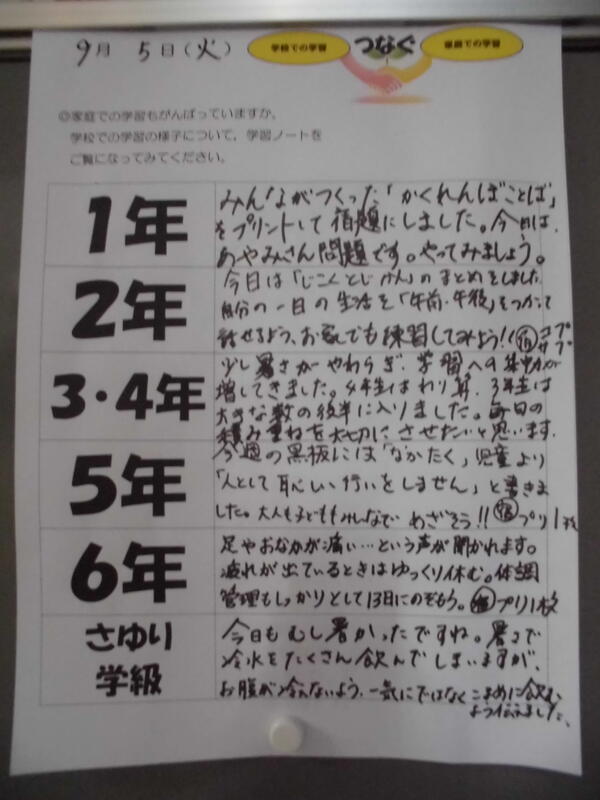 9月 5日(火)
学校での学習
つなぐ
家庭での学習
◎家庭での学習もがんばっていますか。
学校での学習の様子について,学習ノートを
ご覧になってみてください。
1年
みんながつくった「かくれんぼことば」
をプリントして宿題にしました。今日は、
あやみさん問題です。やってみましょう。
2年
今日は「じこくとじかん」のまとめをしました
自分の一日の生活を「午前・午後」をつかって
話せるよう、お家でも練習してみよう!!宿
3・4年
少し暑さがやわらぎ、学習への集中力が
増してきました。4年生はわり算、3年生は
大きな数の後半に入りました。毎日の
積み重ねを大切にさせたいと思います.
5年
今週の黒板には「なかたく」児童より
「人として恥しい行いをしません」と書きま
した。大人も子どももみんなでめざそう!!宿プリ1枚
6年
足やおなかが痛い…という声が聞かれます。
疲れが出ているときはゆっくり休む。体調
管理もしっかりとして13日にのぞもう。宿プリ1枚
さゆり
学級
今日もむし暑かったですね。暑さで
冷水をたくさん飲んでしまいますが、
お腹が冷えないよう、一気にではなくこまめに飲む
よう伝えました、